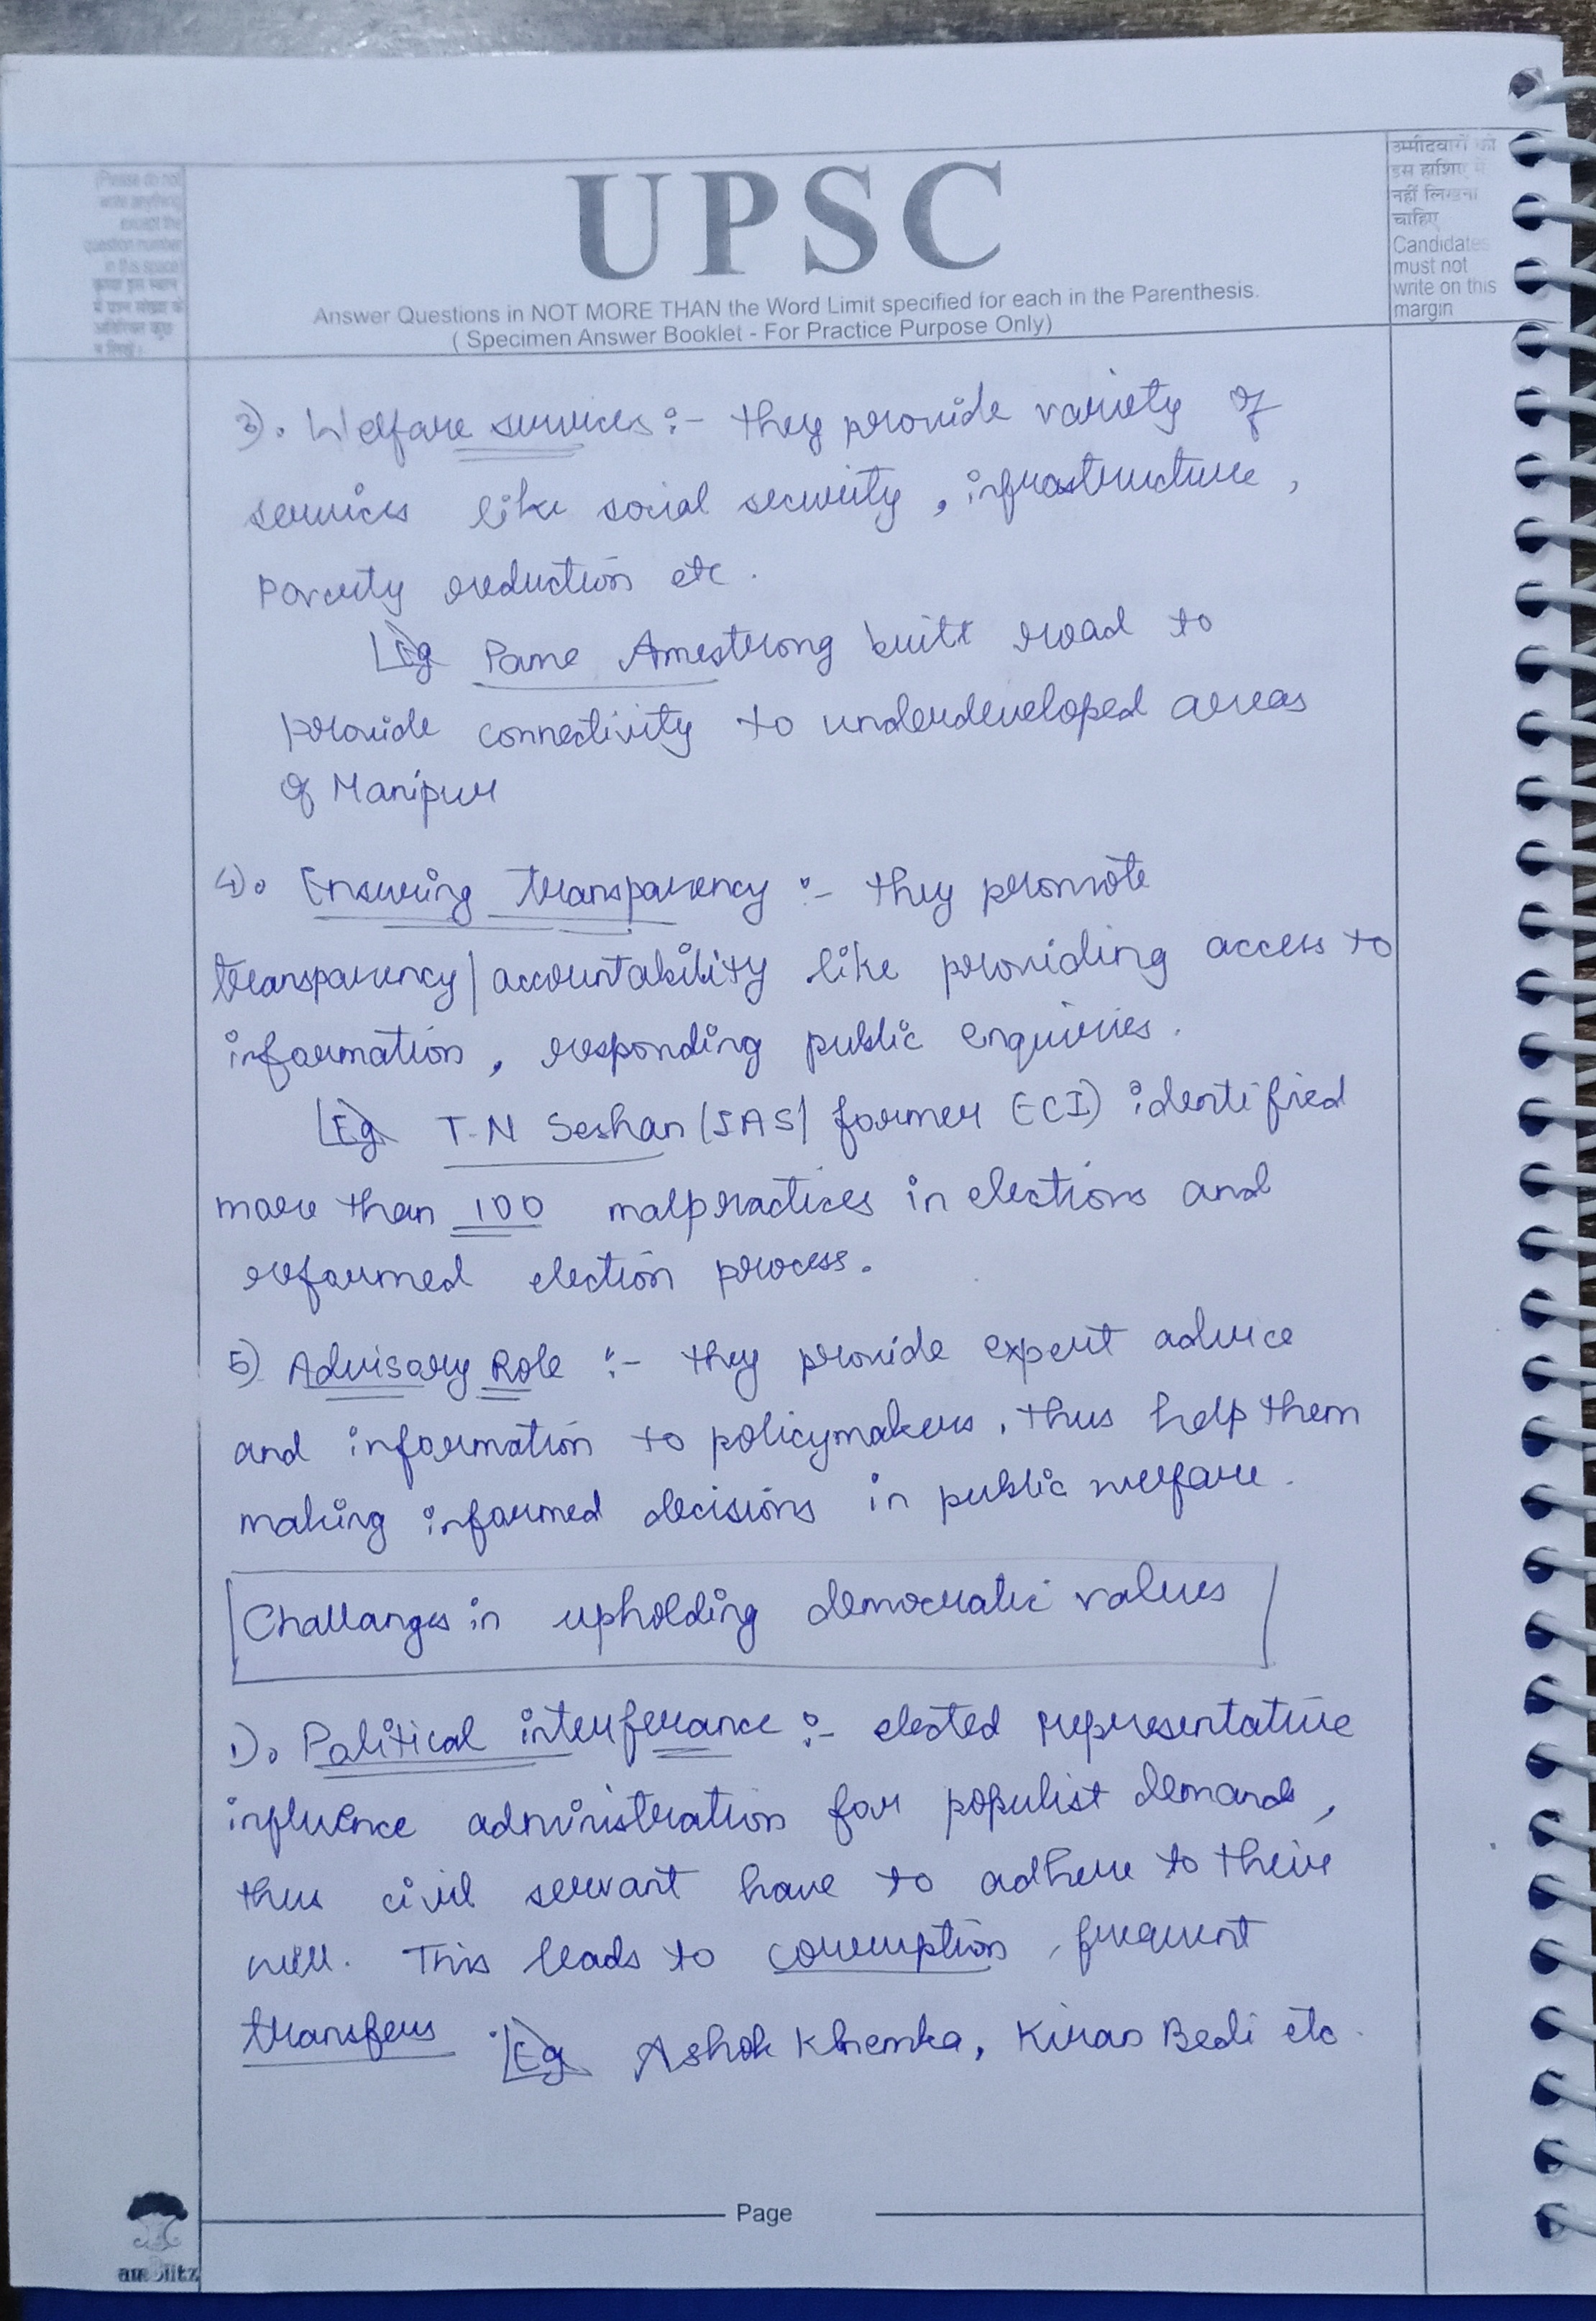 UPSC
Answer Questions in NOT MORE THAN the Word Limit specified for each in the Parenthesis.
( Specimen Answer Booklet - For Practice Purpose Only)
(Please do not
write anything
except the
question number
in this space)
उम्मीदवारों को
इस हाशिए में
नहीं लिखना
चाहिए
Candidates
must not
write on this
margin
3). Welfare services :- they provide variety of
services like social security, infrastructure,
Poverty reduction etc.
Eg Pame Amestrong built road to
provide connectivity to underdeveloped areas
of Manipur
4). Ensuring transparency :- they promote
transparency/accountability like providing access to
information, responding public enquiries.
Eg T.N Seshan (IAS/ former ECI) identified
more than 100 malpractices in elections and
reformed election process.
5) Advisory Role :- they provide expert advice
and information to policymakers, thus help them
making informed decisions in public welfare.
Challanges in upholding democratic values
1). Political interferance :- elected representative
influence administration for populist demands,
thus civil servant have to adhere to their
will. This leads to corruption, frequent
transfers. Eg Ashok Khemka, Kiran Bedi etc.
Page